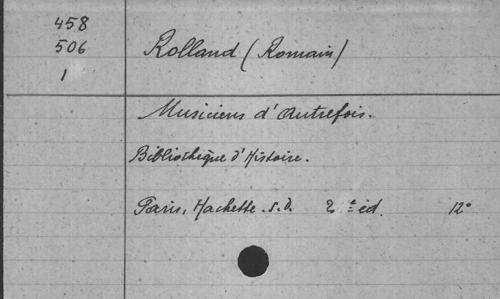 458
506
1
Rolland (Romain)
Musiciens d'Autrefois.
Bibliothèque d'Histoire.
Paris, Hachette. s.d. 2e éd. 12°